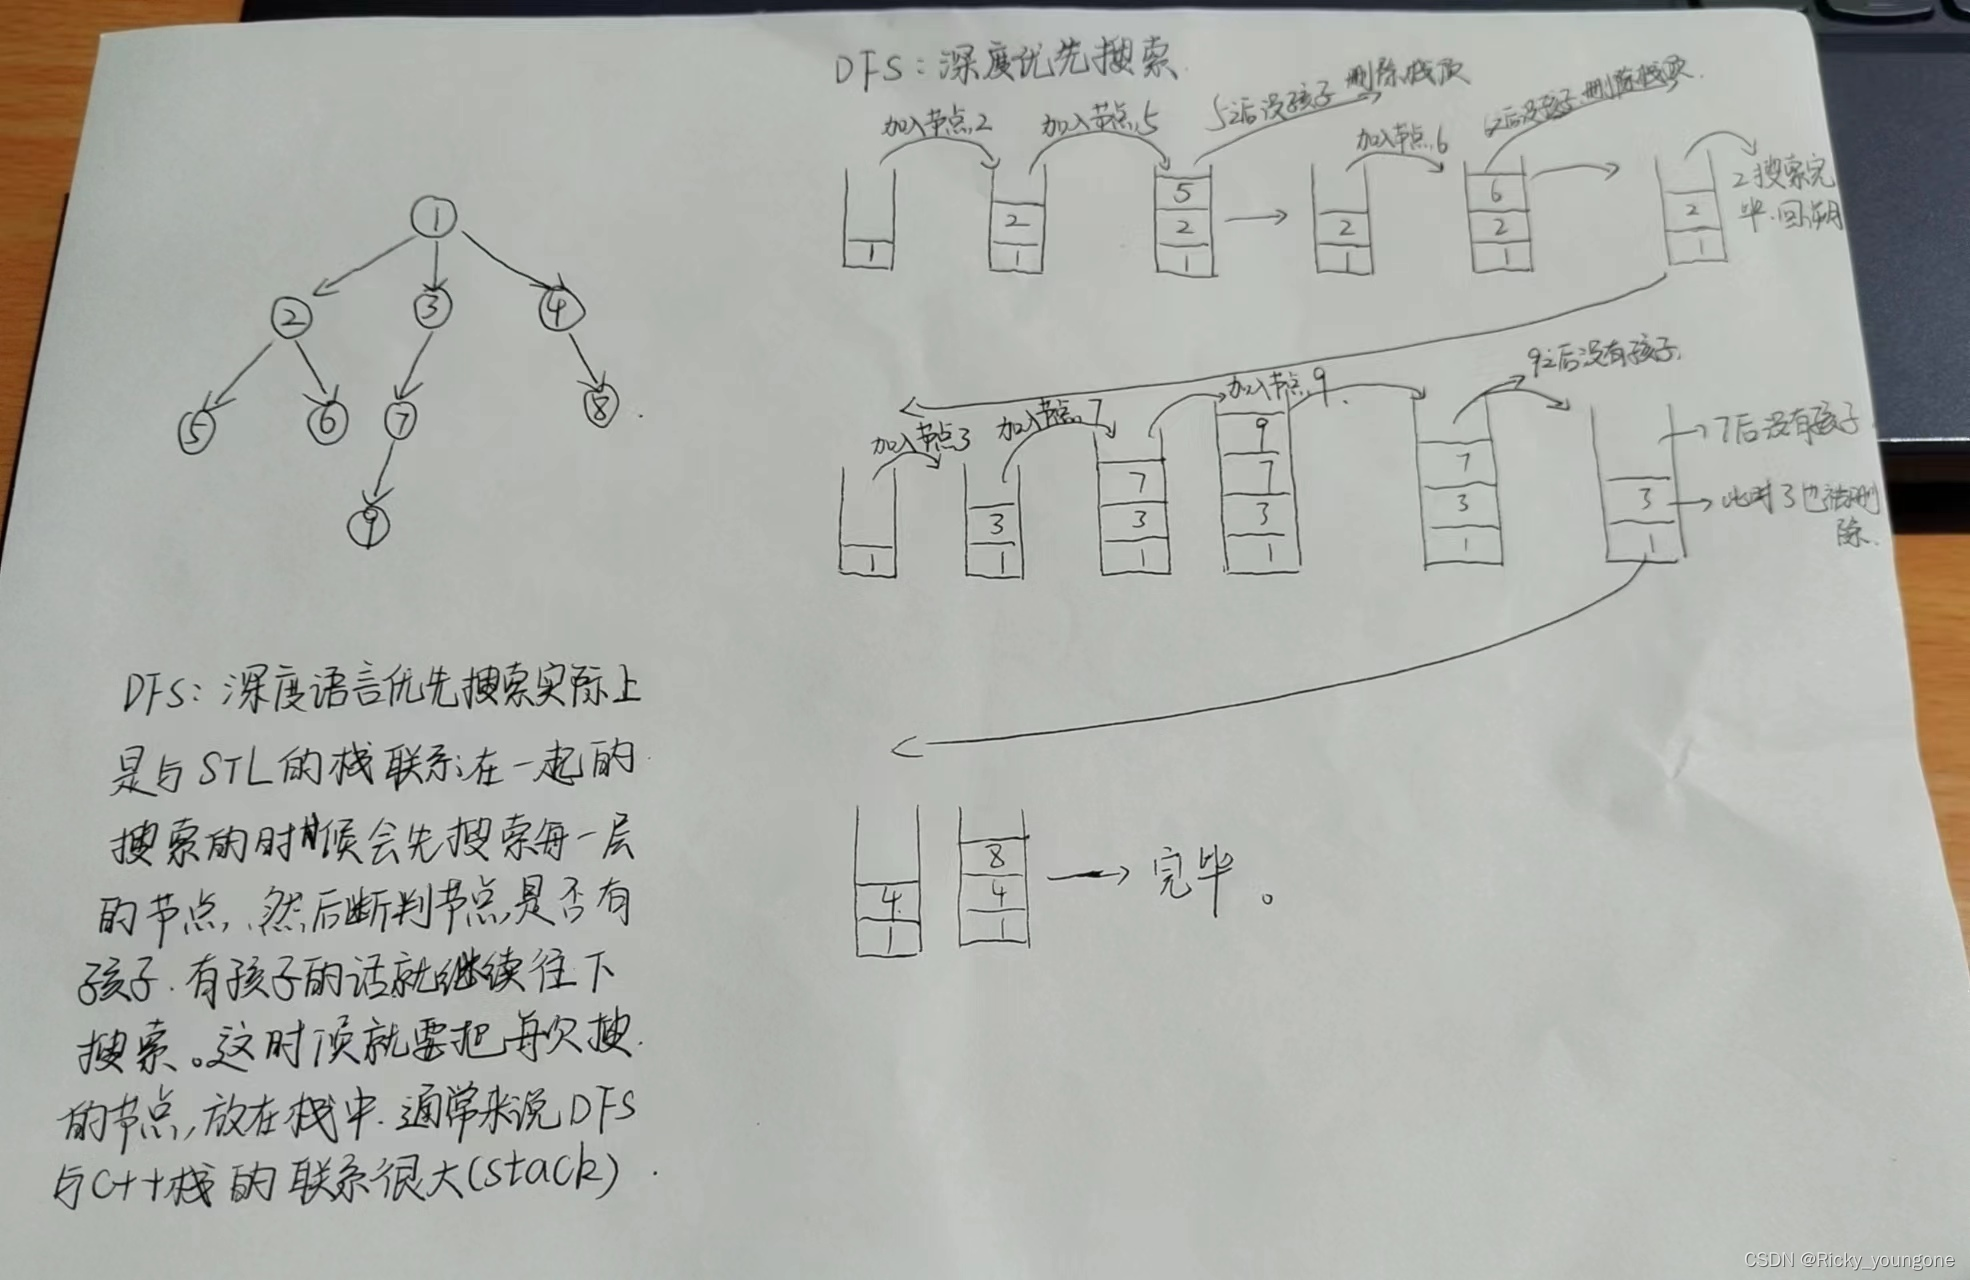 DFS：深度优先搜索.
加入节点2
加入节点5
5之后没孩子 删除栈顶
加入节点6
6之后没孩子.删除栈顶.
1
2
1
5
2
1
2
1
6
2
1
2
1
2搜索完
毕.回溯
1
2
3
4
5
6
7
8
9
加入节点3
加入节点7
加入节点9.
9之后没有孩子.
1
3
1
7
3
1
9
7
3
1
7
3
1
3
1
7后没有孩子
此时3也被删
除.
4
1
8
4
1
完毕。
DFS：深度语言优先搜索实际上
是与STL的栈联系在一起的
搜索的时候会先搜索每一层
的节点,然后断判节点是否有
孩子.有孩子的话就继续往下
搜索。这时须就要把每次搜
的节点,放在栈中.通常来说DFS
与C++栈的联系很大(stack).
CSDN @Ricky_youngone